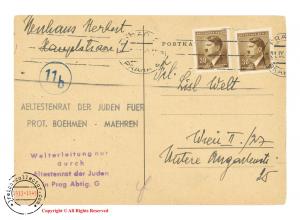 Neuhaus Herbert
Hauptstrasse 7
POSTKA
11
b
Frl. Lisl Welt
AELTESTENRAT DER JUDEN FUER
PROT. BOEHMEN - MAEHREN
Wien II./27
Untere Augartenstr.
Weiterleitung nur
durch
Aeltestenrat der Juden
in Prag Abtlg. G
© Copyright All Rights Reserved